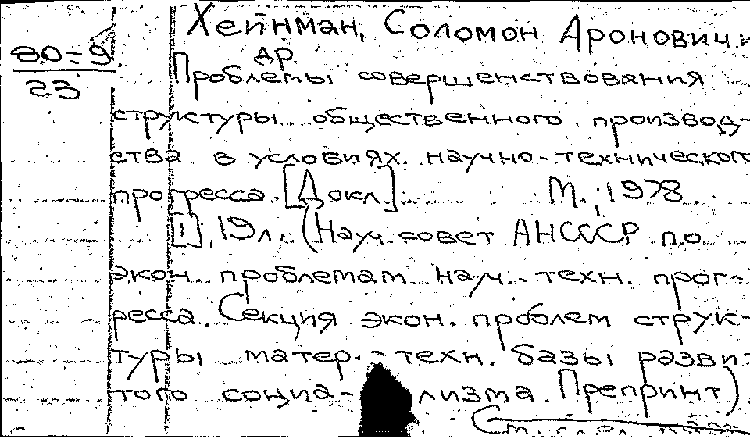 Хейнман, Соломон Аронович и
др.
80-9
23
Проблемы совершенствования
структуры общественного производ-
ства в условиях научно-технического
прогресса. [Докл.]. М., 1978
[1], 19 л. (Науч. совет АН СССР по
экон. проблемам науч.-техн. прог-
ресса. Секция экон. проблем струк-
туры матер.-техн. базы разви-
того социа-лизма. Препринт)